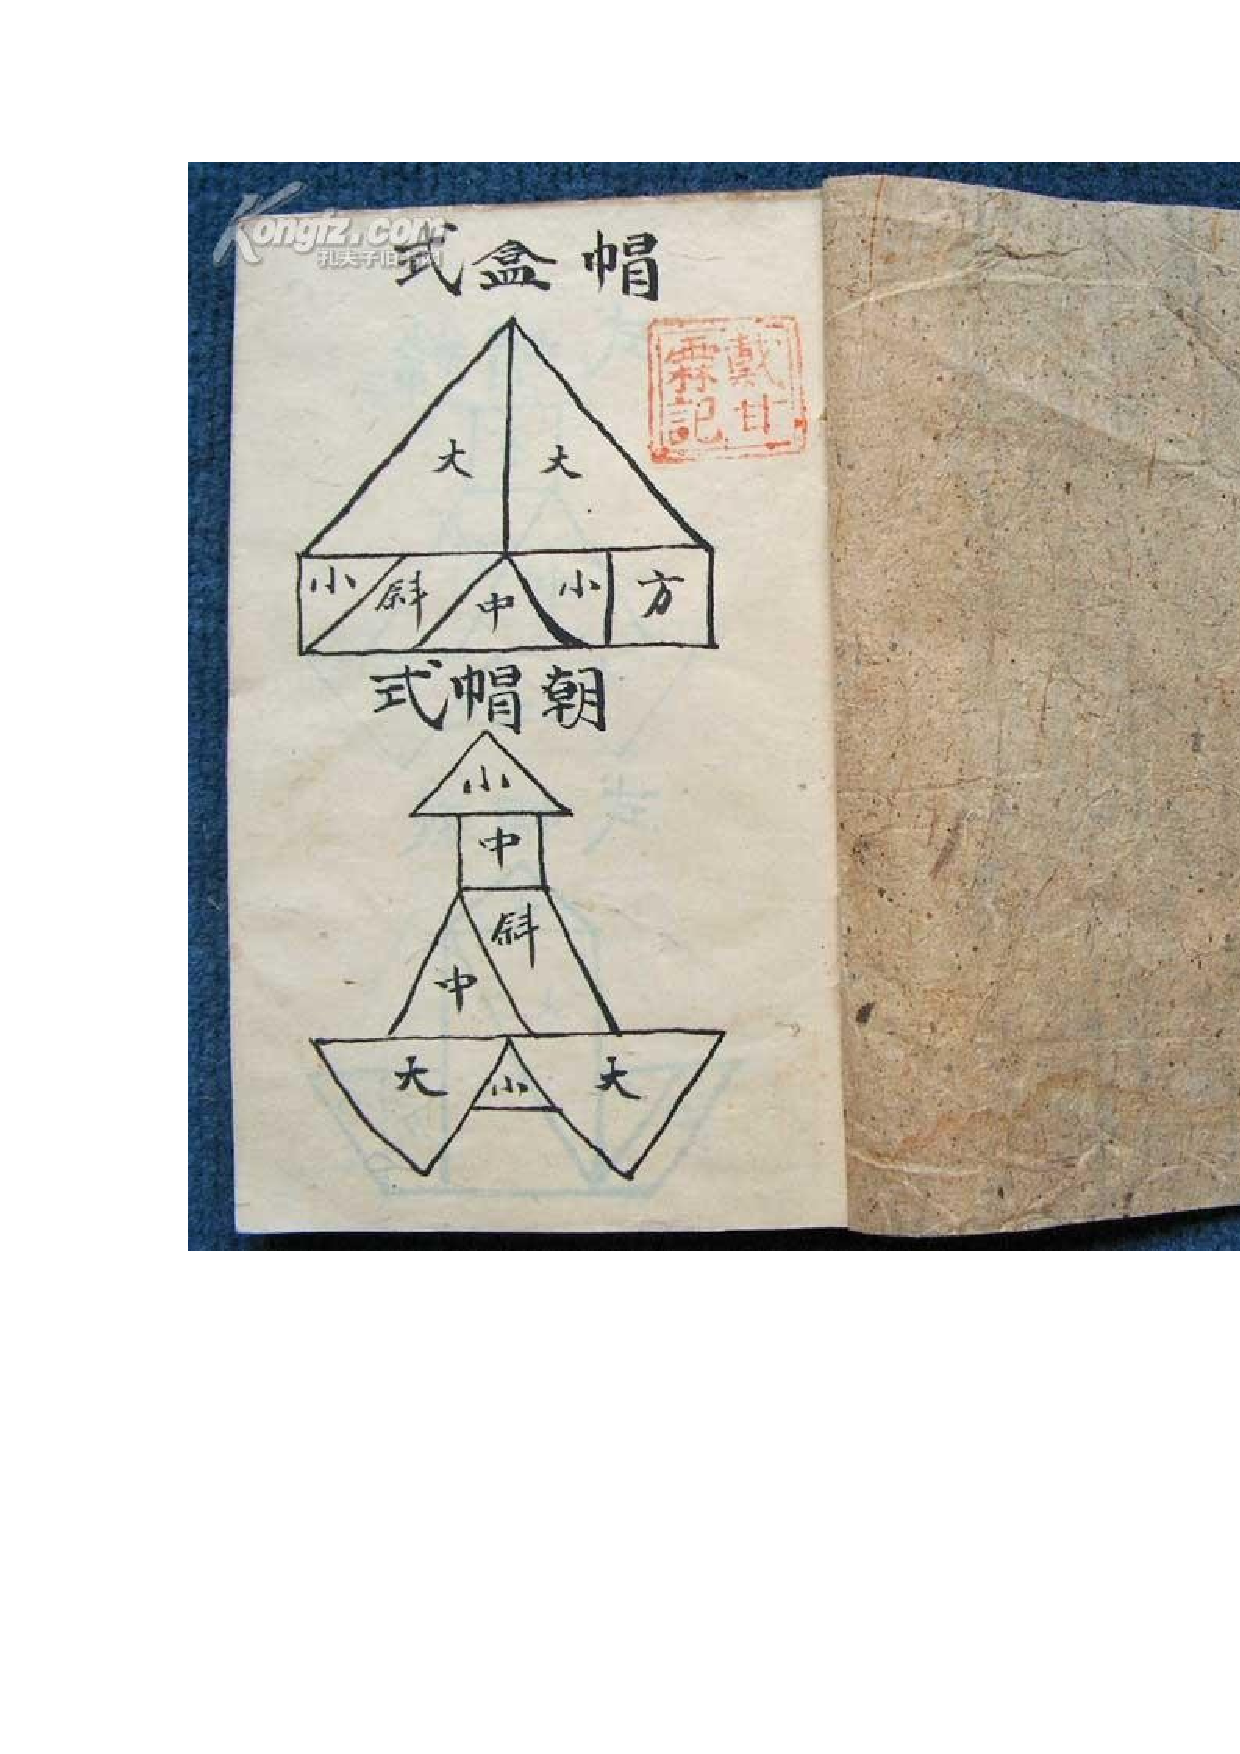 Kongfz.com
孔夫子旧书网
帽盒式
戴甘
霖記
大 大
小 斜 中 小 方
朝帽式
小
中
斜
中
大 小 大